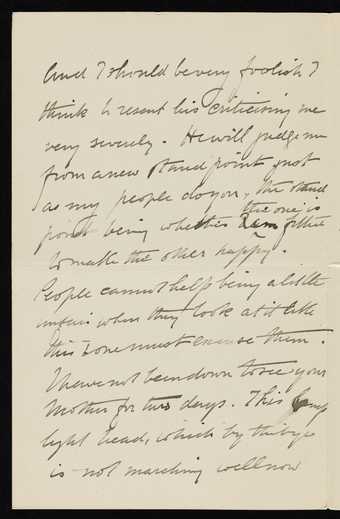 And I should be very foolish I
think to resent his criticising me
very severely. He will judge me
from a new stand point just
as my people do you, the stand
point being whether the one is fitted
to make the other happy.
People cannot help being a little
unfair when they look at it like
this & one must excuse them.
I have not been down to see your
Mother for two days. This
light head, which by the bye
is not marching well now